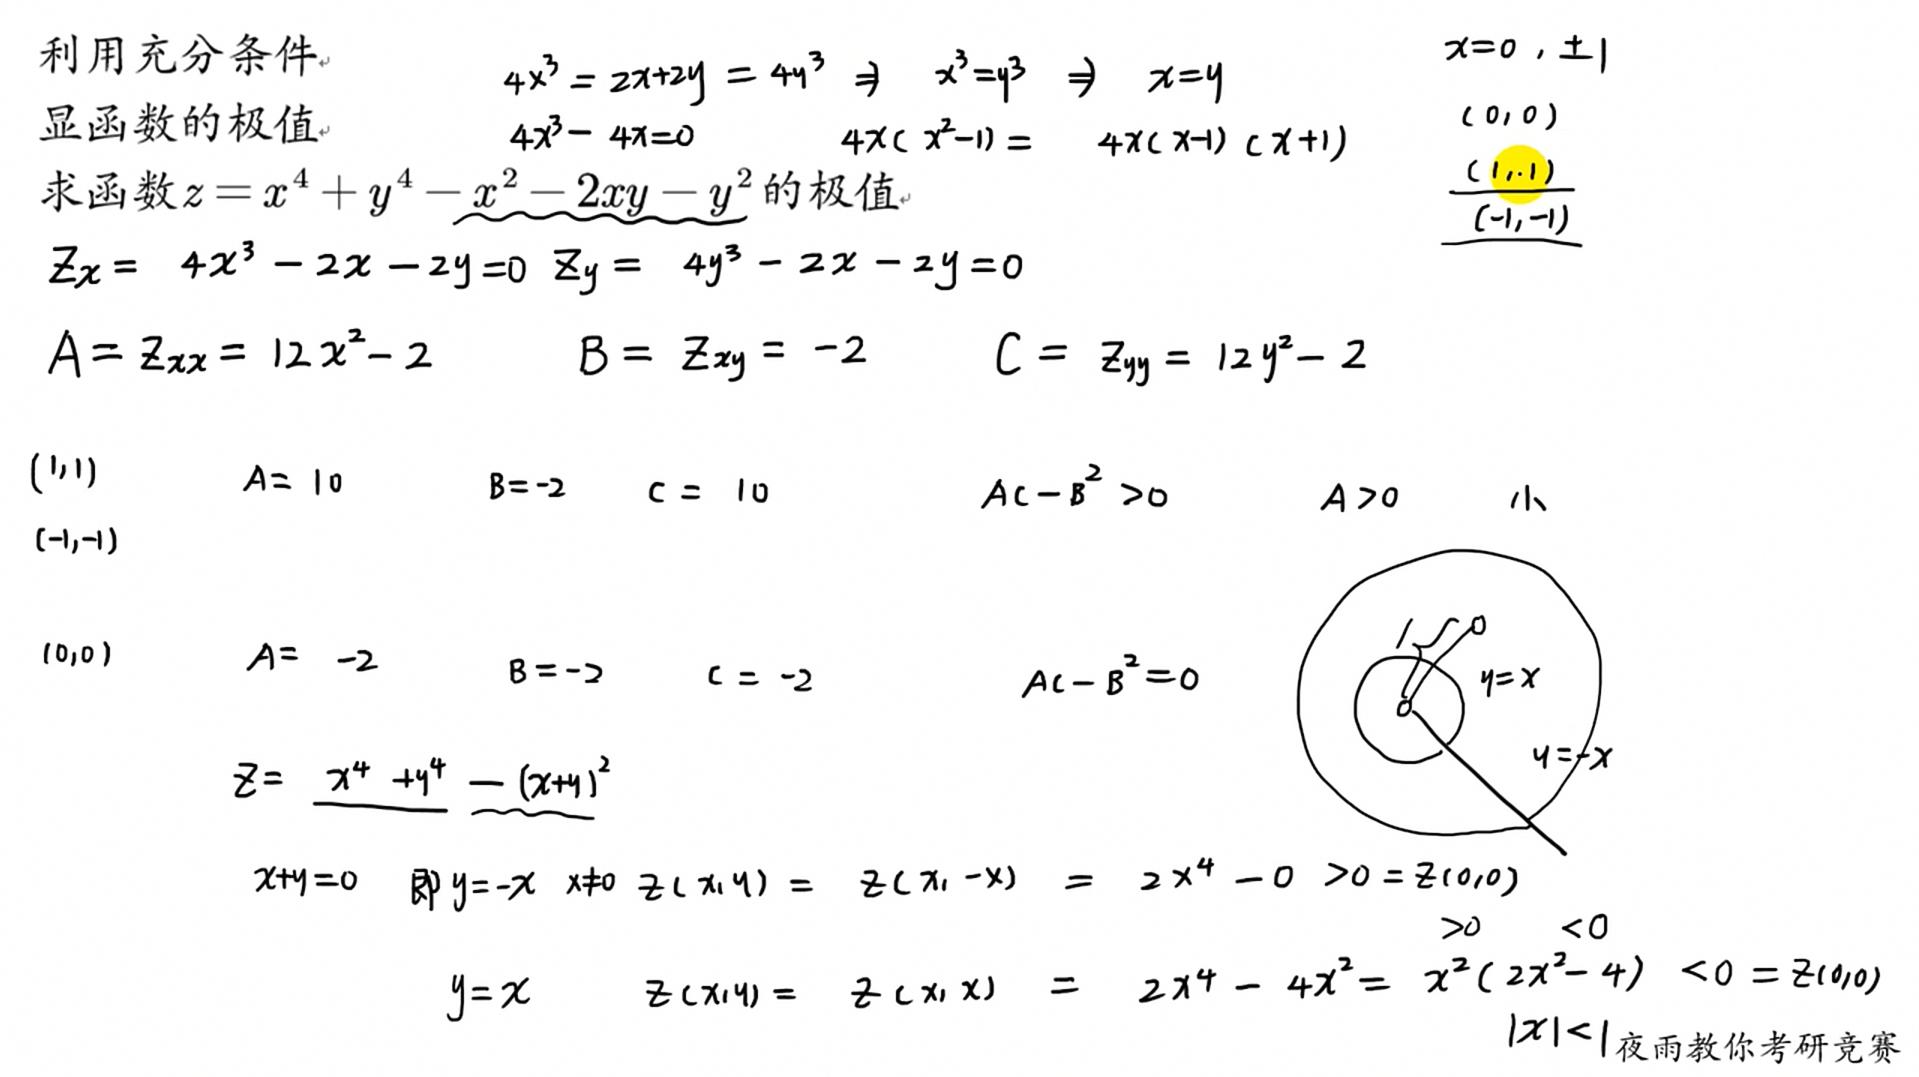 利用充分条件
显函数的极值
4x³ = 2x+2y = 4y³ ⇒ x³=y³ ⇒ x=y
4x³ - 4x=0 4x(x²-1) = 4x(x-1)(x+1)
x=0, ±1
(0,0)
(1,1)
(-1,-1)
求函数z = x⁴ + y⁴ - x² - 2xy - y²的极值
Zx = 4x³ - 2x - 2y=0 Zy = 4y³ - 2x - 2y=0
A = Zxx = 12x² - 2 B = Zxy = -2 C = Zyy = 12y² - 2
(1,1) A= 10 B=-2 C = 10 AC - B² >0 A>0 小
(-1,-1)
(0,0) A= -2 B=-2 C = -2 AC - B²=0
y=x
y=-x
Z= x⁴ +y⁴ - (x+y)²
x+y=0 即y=-x x≠0 Z(x,y) = Z(x,-x) = 2x⁴ - 0 >0 = Z(0,0)
>0 <0
y=x Z(x,y) = Z(x,x) = 2x⁴ - 4x² = x²(2x²-4) <0 = Z(0,0)
|x|<1
夜雨教你考研竞赛